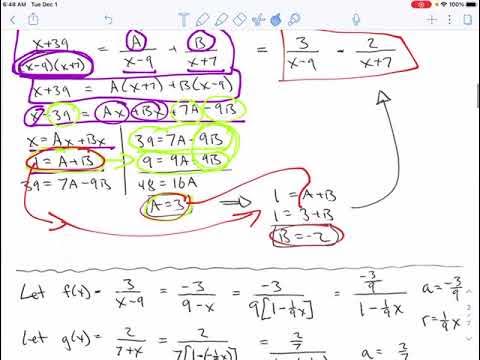 6:48 AM Tue Dec 1
100%
x+39 / (x-9)(x+7) = A / x-9 + B / x+7 = 3 / x-9 - 2 / x+7
x+39 = A(x+7)+B(x-9)
x+39 = Ax+Bx+7A-9B
x = Ax+Bx
39 = 7A-9B
1 = A+B
9 = 9A 9B
39 = 7A-9B
48 = 16A
A = 3
⇒
1 = A+B
1 = 3+B
B = -2
Let f(x) = 3 / x-9 = -3 / 9-x = -3 / 9[1-1/9x] = -3/9 / 1-1/9x a = -3/9
r = 1/9x
Let g(x) = 2 / 7+x = 2 / 7[1-(-1/7x)] = 2/7 a = 2/7